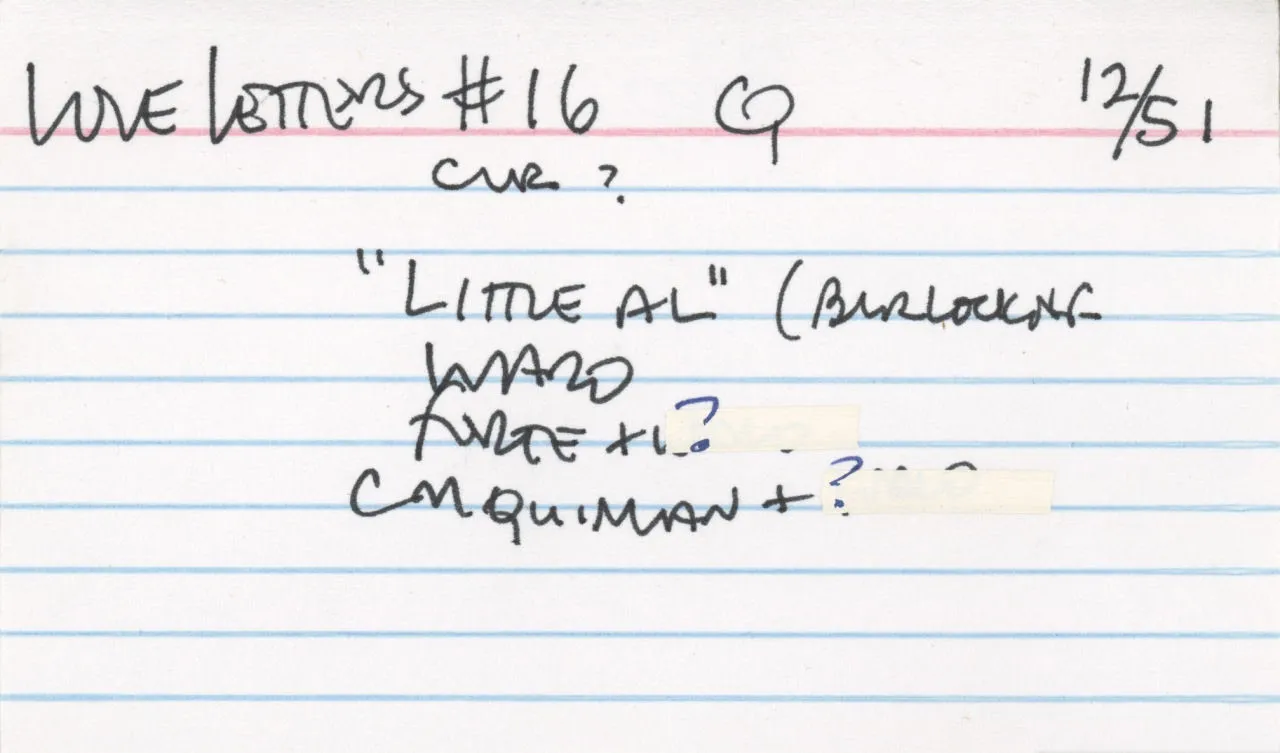 LOVE LETTERS #16 Q 12/51
CVR ?
"LITTLE AL" (BURLOCKNF
WARD
FORTE + ?
CM QUINLAN + ?